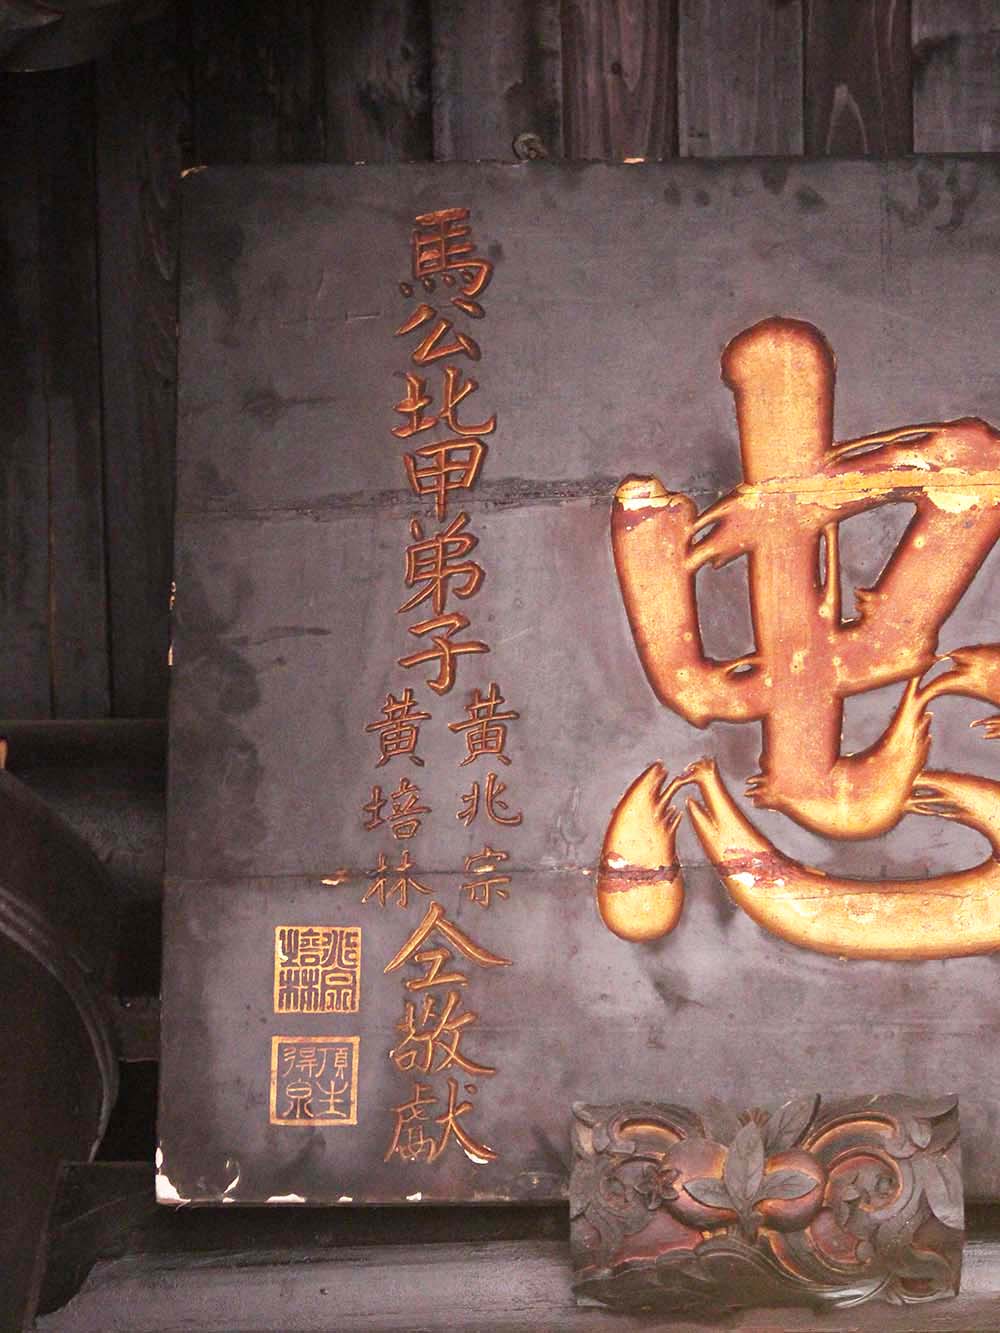 忠
馬公北甲弟子
黃兆宗
黃培林
仝敬獻
兆宗
培林
頂生
得泉